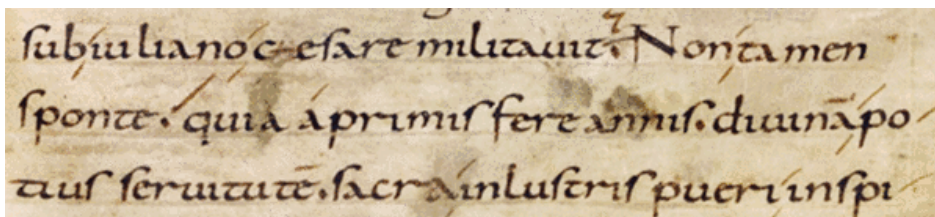 sub iuliano cesare militauit. Non tamen
sponte. quia a primis fere annis. diuinā po
tius seruitutē. sacra inlustris pueri inspi